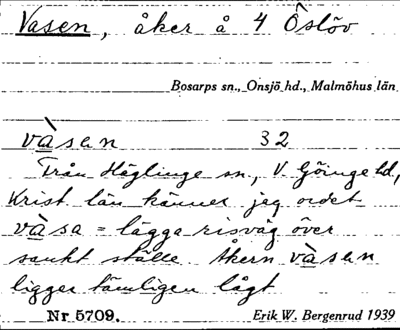 Vasen, åker å 4 Öslöv
Bosarps sn., Onsjö hd., Malmöhus län
vàsen 32
Från Häglinge sn., V. Göinge hd,
Krist. län känner jag ordet
vàsa = lägga risväg över
sankt ställe. Åkern vàsen
ligger tämligen lågt
Nr 5709. Erik W. Bergenrud 1939